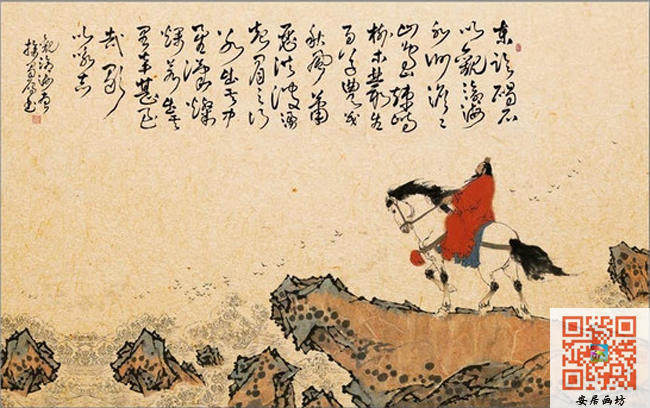 東臨碣石
以觀滄海
水何澹澹
山島竦峙
樹木叢生
百草豐茂
秋風蕭
瑟洪波湧
起日月之行
若出其中
星漢燦
爛若出其
里幸甚至
哉歌
以詠志
觀滄海
安居画坊